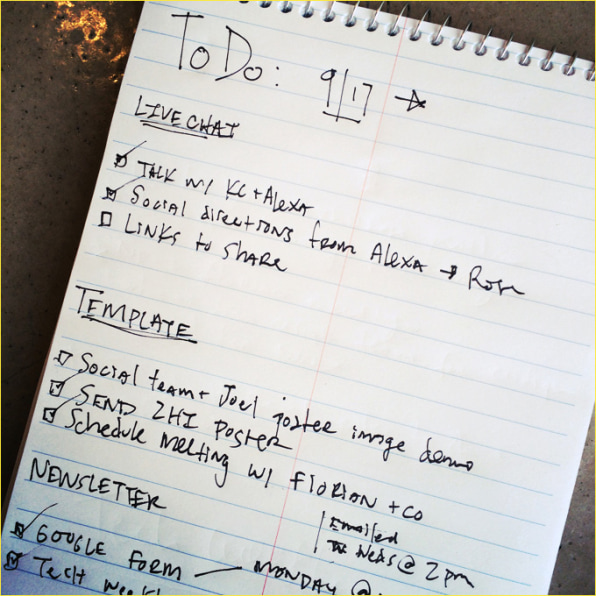 To Do: 9/17 →
LIVE CHAT
TALK W/ KC + ALEXA
Social directions from ALEXA → Rose
LINKS to SHARE
TEMPLATE
Social team + Joel poster image demo
SEND ZHI POSTER
Schedule meeting w/ FLORIAN + CO
Emailed
Weds @ 2 pm
NEWSLETTER
GOOGLE FORM — MONDAY @
Tech